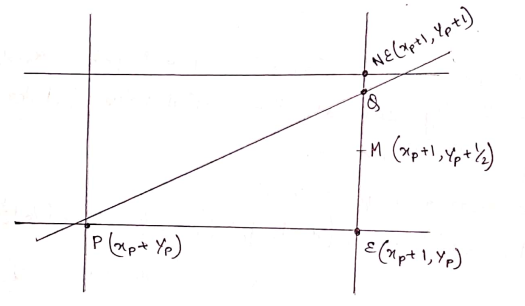 NE(xp+1, Yp+1)
Q
M (xp+1, Yp+½)
P(xp+Yp)
E(xp+1, Yp)